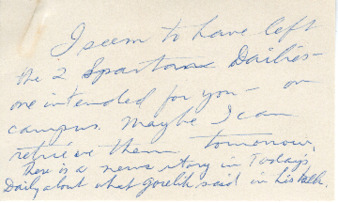 I seem to have left
the 2 Spartan Dailies -
one intended for you - on
campus. Maybe I can
retrieve them tomorrow.
There is a news story in Today's
Daily about what Gorelik said in his talk.